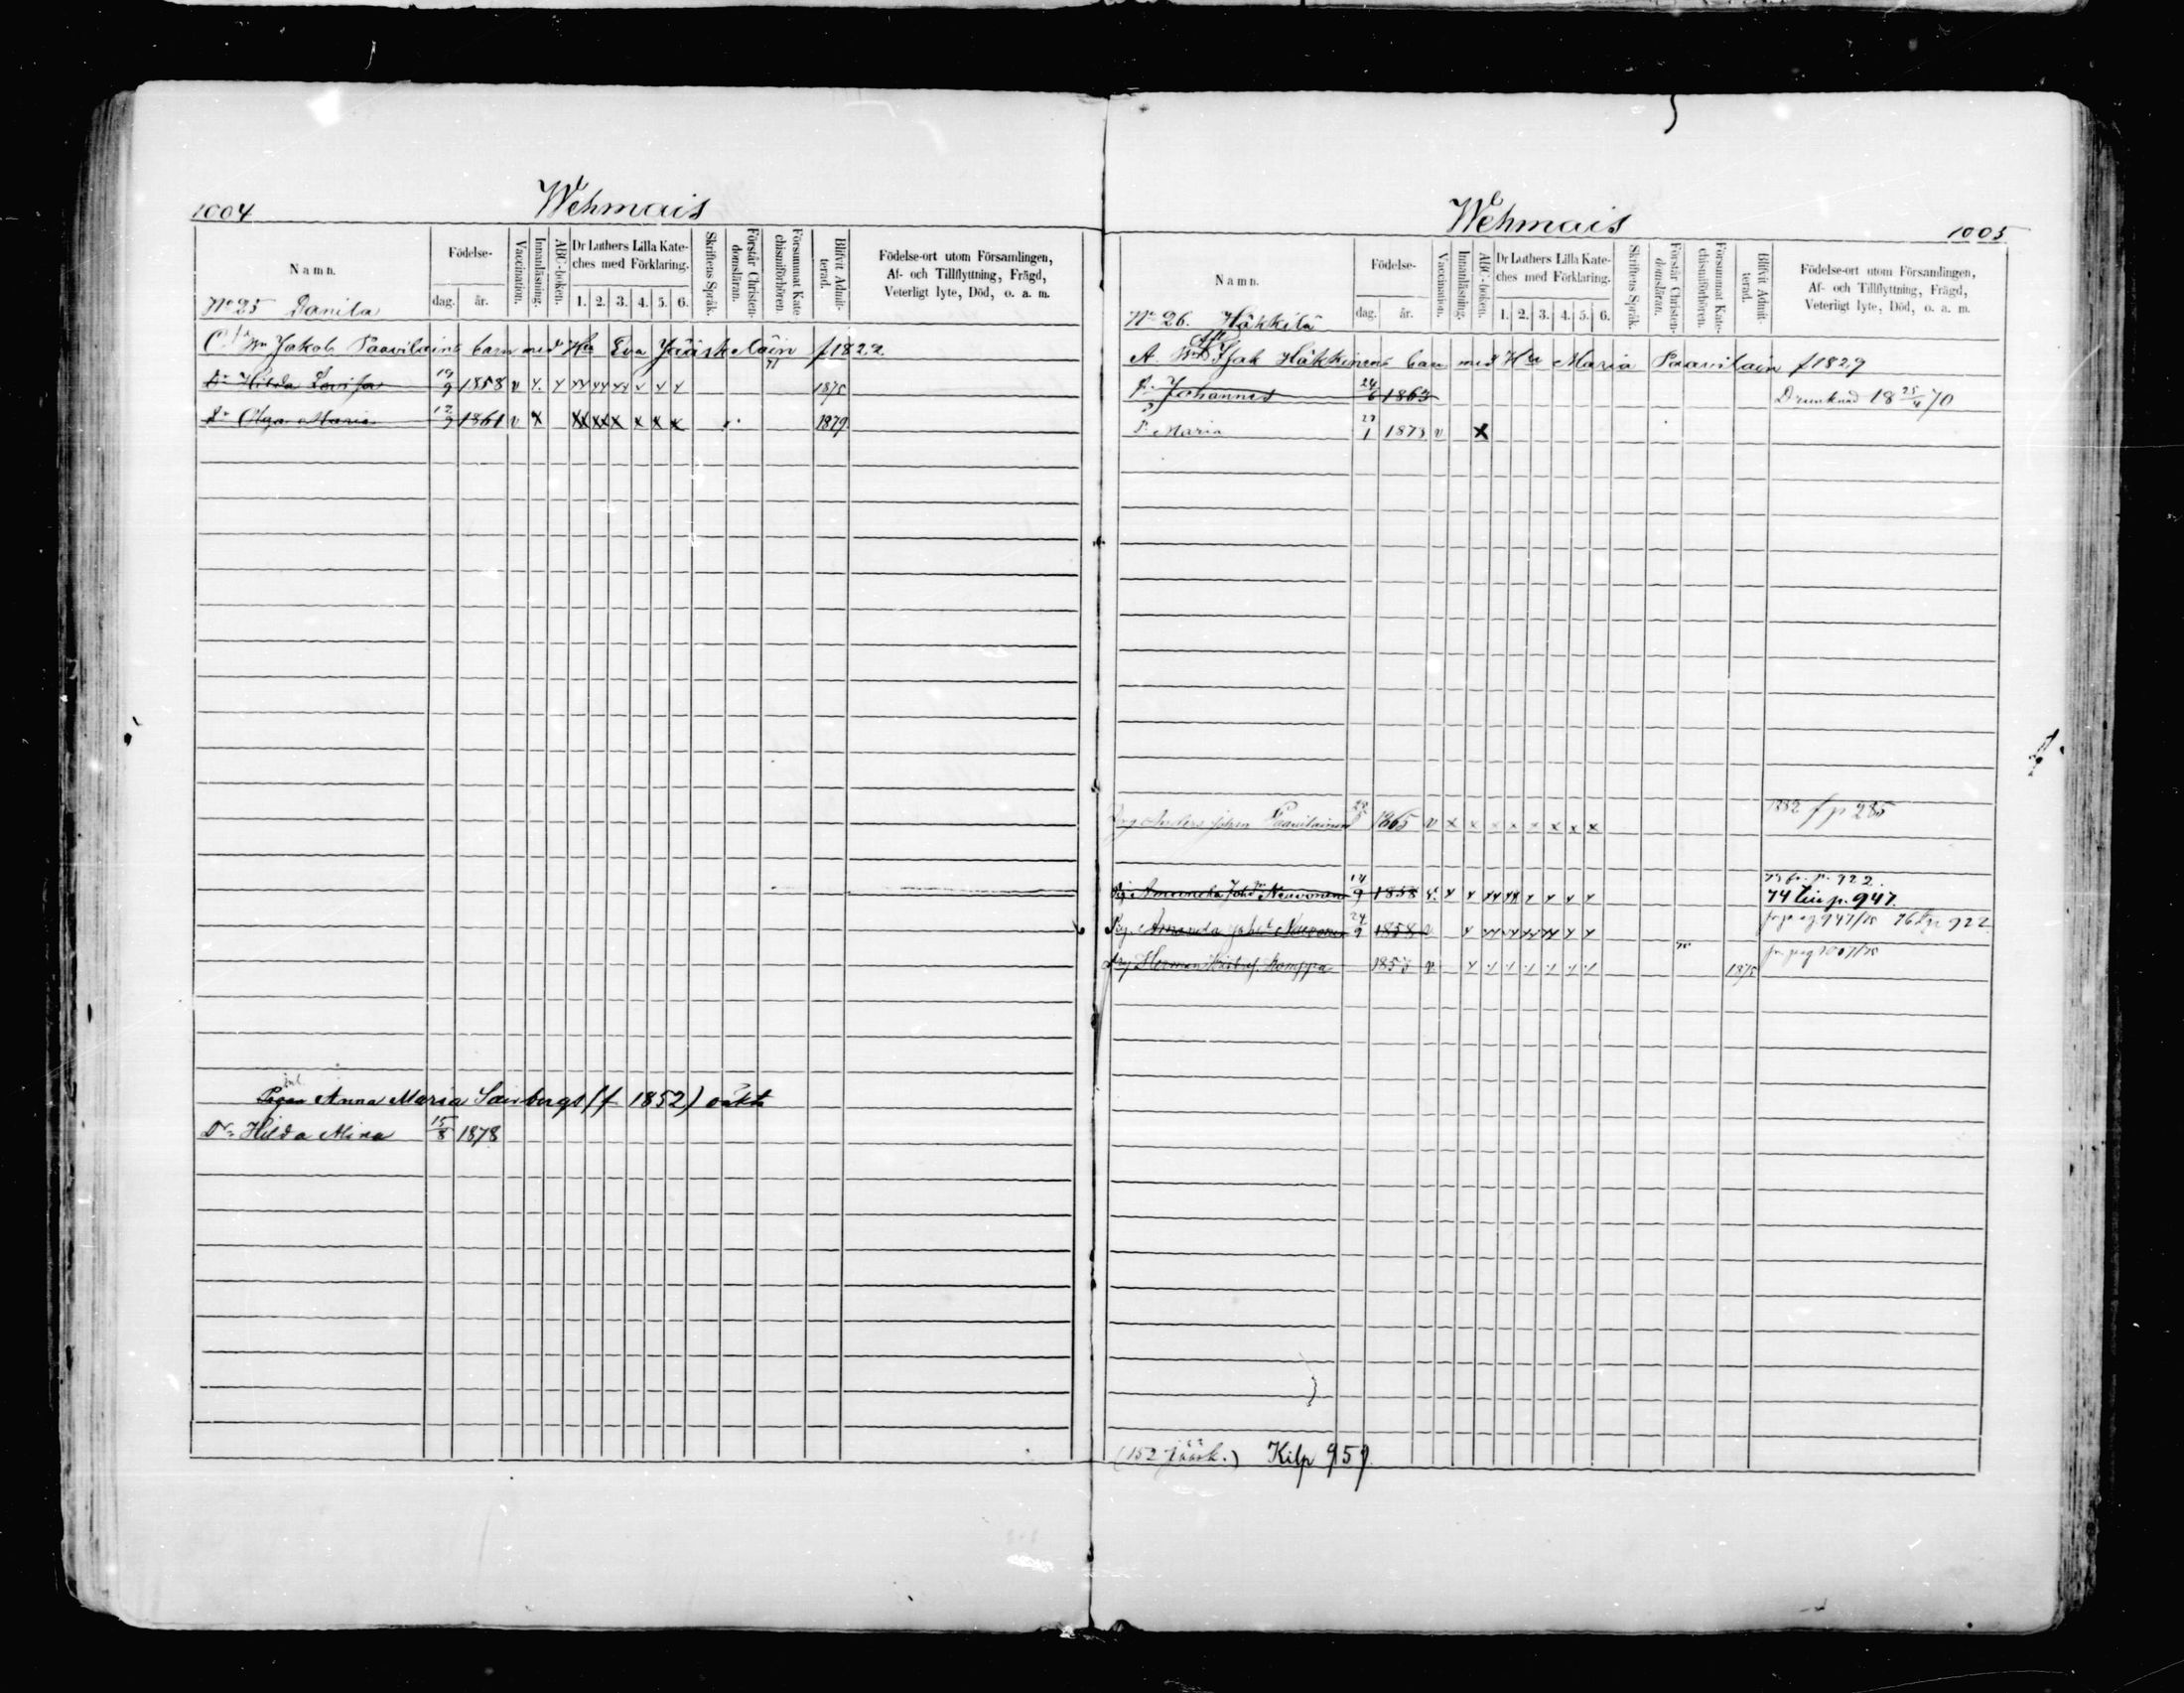 1004
Wehmais
Namn.
Födelse-
dag.
år.
Vaccination.
Innanläsning.
ABC-boken.
Dr Luthers Lilla Kate-
ches med Förklaring.
1. 2. 3. 4. 5. 6.
Skriftens Språk.
Förstår Christen-
domsläran.
Försummat Kate
chismiförhören.
Blifvit Admit-
terad.
Födelse-ort utom Församlingen,
Af- och Tillflyttning, Frägd,
Veterligt lyte, Död, o. a. m.
No 25 Danila
C. Jakob Paavilains barn med Hu Eva Jääskeläin f 1822
Dr Hilda Lovisa 19/9 1858 v x x xx xx xx x x x 1875
Dr Olga Maria 12/9 1861 v x xx xx x x x x 1879
Pigan Anna Maria Sainbergs (f 1852) oäkta
Dr Hilda Mina 15/8 1878
Wehmais
1005
Namn.
Födelse-
dag.
år.
Vaccination.
Innanläsning.
ABC-boken.
Dr Luthers Lilla Kate-
ches med Förklaring.
1. 2. 3. 4. 5. 6.
Skriftens Språk.
Förstår Christen-
domsläran.
Försummat Kate-
chismiförhören.
Blifvit Admit-
terad.
Födelse-ort utom Församlingen,
Af- och Tillflyttning, Frägd,
Veterligt lyte, Död, o. a. m.
No 26. Häkkilä
A. Isak Häkkinens barn med Hu Maria Paavilain f 1829
Johannes 24/6 1863 Drunknad 18 25/4 70
Maria 1873 v x
Drg Anders Johan Paavilainen 1865 v x x x x x x x x 1882 f p 285
Johdr Neuvonen 14/9 1858 v. x x xx xx x x x x 73 fr. p. 922.
74 till p. 947.
Pig. Amanda Johdr Neuvonen 24/9 1858 v x xx x xx xx x x 947/75 76 922
Drg Herman Kristof. Komppa v x x x x x x x 1875 1007/75
(152 Jääsk.) Kilp 959